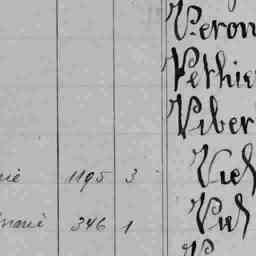 Veron
Pethie
Viber
rie 1195 3 Viel
nnaie 346 1 Viel